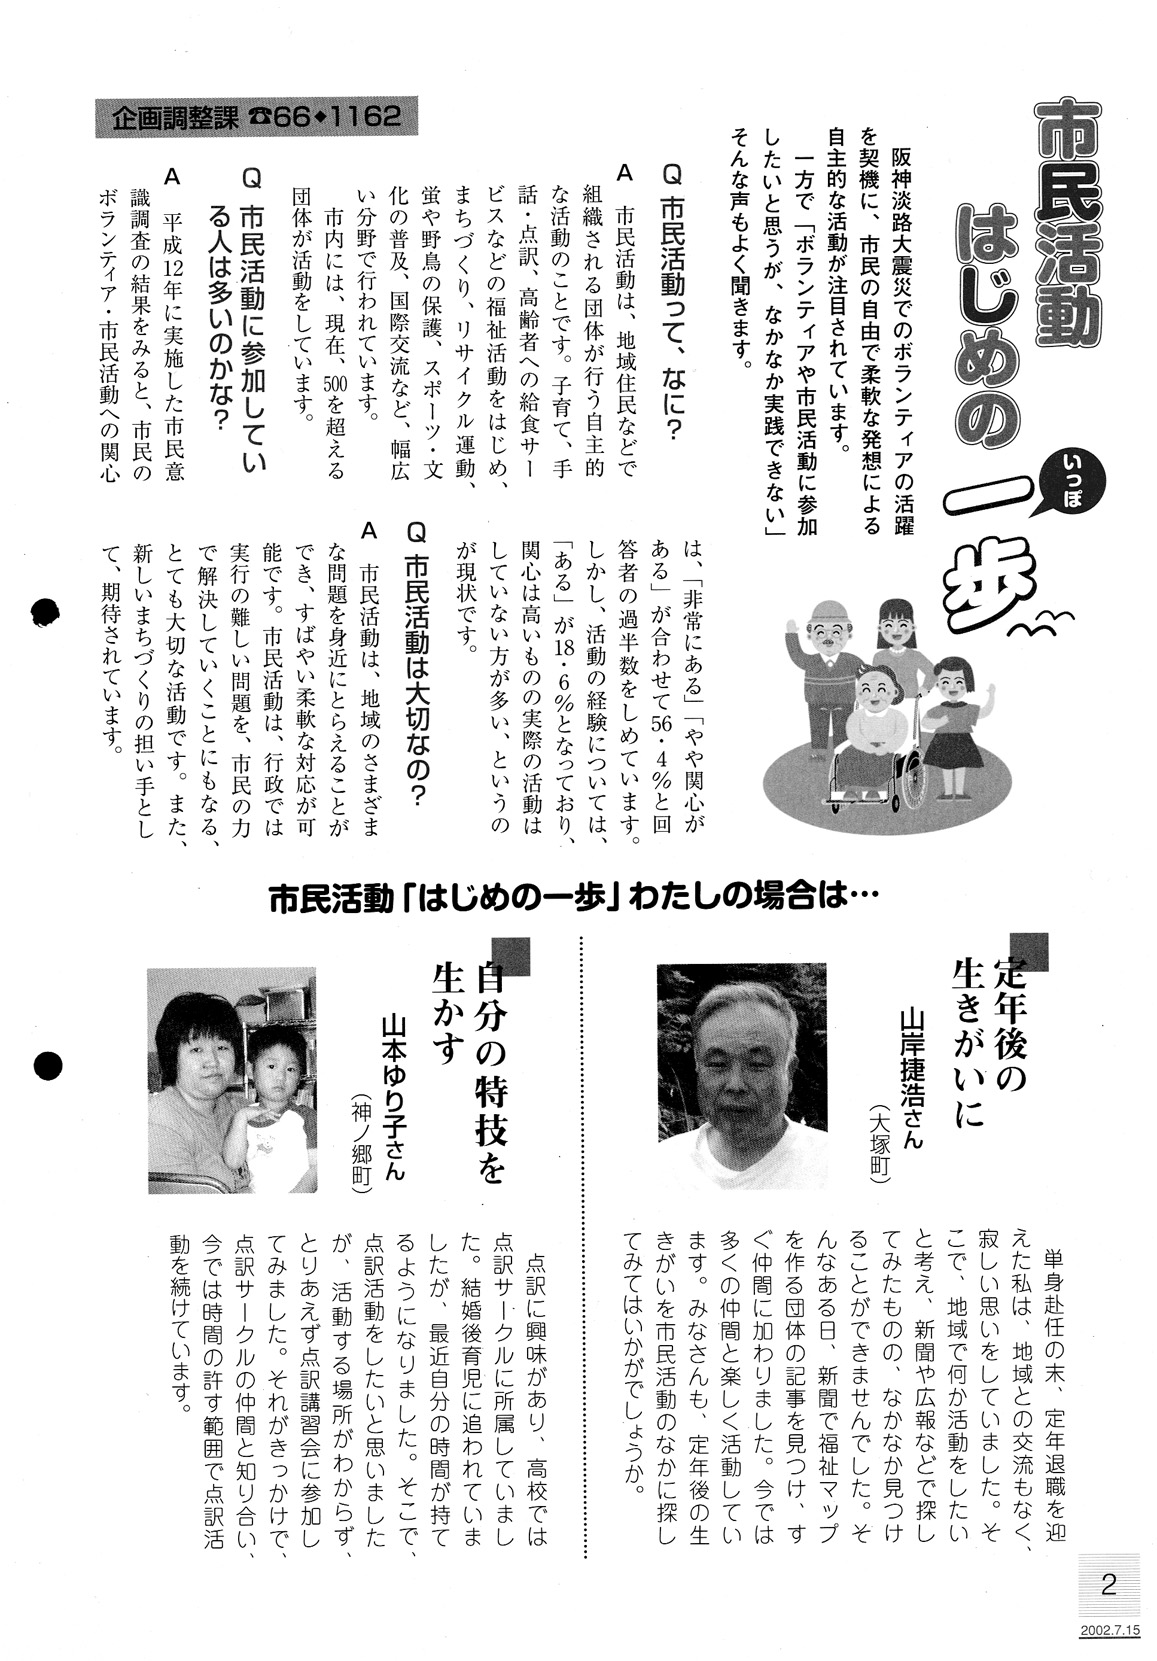 市民活動
はじめの
一歩
いっぽ
企画調整課 ☎66◆1162
阪神淡路大震災でのボランティアの活躍
を契機に、市民の自由で柔軟な発想による
自主的な活動が注目されています。
一方で「ボランティアや市民活動に参加
したいと思うが、なかなか実践できない」
そんな声もよく聞きます。
Q 市民活動って、なに？
A 市民活動は、地域住民などで
組織される団体が行う自主的
な活動のことです。子育て、手
話・点訳、高齢者への給食サー
ビスなどの福祉活動をはじめ、
まちづくり、リサイクル運動、
蛍や野鳥の保護、スポーツ・文
化の普及、国際交流など、幅広
い分野で行われています。
市内には、現在、500を超える
団体が活動をしています。
Q 市民活動に参加してい
る人は多いのかな？
A 平成12年に実施した市民意
識調査の結果をみると、市民の
ボランティア・市民活動への関心
は、「非常にある」「やや関心が
ある」が合わせて56・4％と回
答者の過半数をしめています。
しかし、活動の経験については、
「ある」が18・6％となっており、
関心は高いものの実際の活動は
していない方が多い、というの
が現状です。
Q 市民活動は大切なの？
A 市民活動は、地域のさまざま
な問題を身近にとらえることが
でき、すばやい柔軟な対応が可
能です。市民活動は、行政では
実行の難しい問題を、市民の力
で解決していくことにもなる、
とても大切な活動です。また、
新しいまちづくりの担い手とし
て、期待されています。
市民活動「はじめの一歩」わたしの場合は…
定年後の
生きがいに
山岸捷浩さん
（大塚町）
単身赴任の末、定年退職を迎
えた私は、地域との交流もなく、
寂しい思いをしていました。そ
こで、地域で何か活動をしたい
と考え、新聞や広報などで探し
てみたものの、なかなか見つけ
ることができませんでした。そ
んなある日、新聞で福祉マップ
を作る団体の記事を見つけ、す
ぐ仲間に加わりました。今では
多くの仲間と楽しく活動してい
ます。みなさんも、定年後の生
きがいを市民活動のなかに探し
てみてはいかがでしょうか。
自分の特技を
生かす
山本ゆり子さん
（神ノ郷町）
点訳に興味があり、高校では
点訳サークルに所属していまし
た。結婚後育児に追われていま
したが、最近自分の時間が持て
るようになりました。そこで、
点訳活動をしたいと思いました
が、活動する場所がわからず、
とりあえず点訳講習会に参加し
てみました。それがきっかけで、
点訳サークルの仲間と知り合い、
今では時間の許す範囲で点訳活
動を続けています。
2
2002.7.15